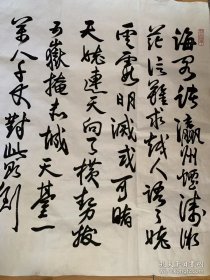 海客談瀛洲煙濤微
茫信難求越人語天姥
雲霞明滅或可睹
天姥連天向天橫勢拔
五嶽掩赤城天臺一
萬八千丈對此欲倒